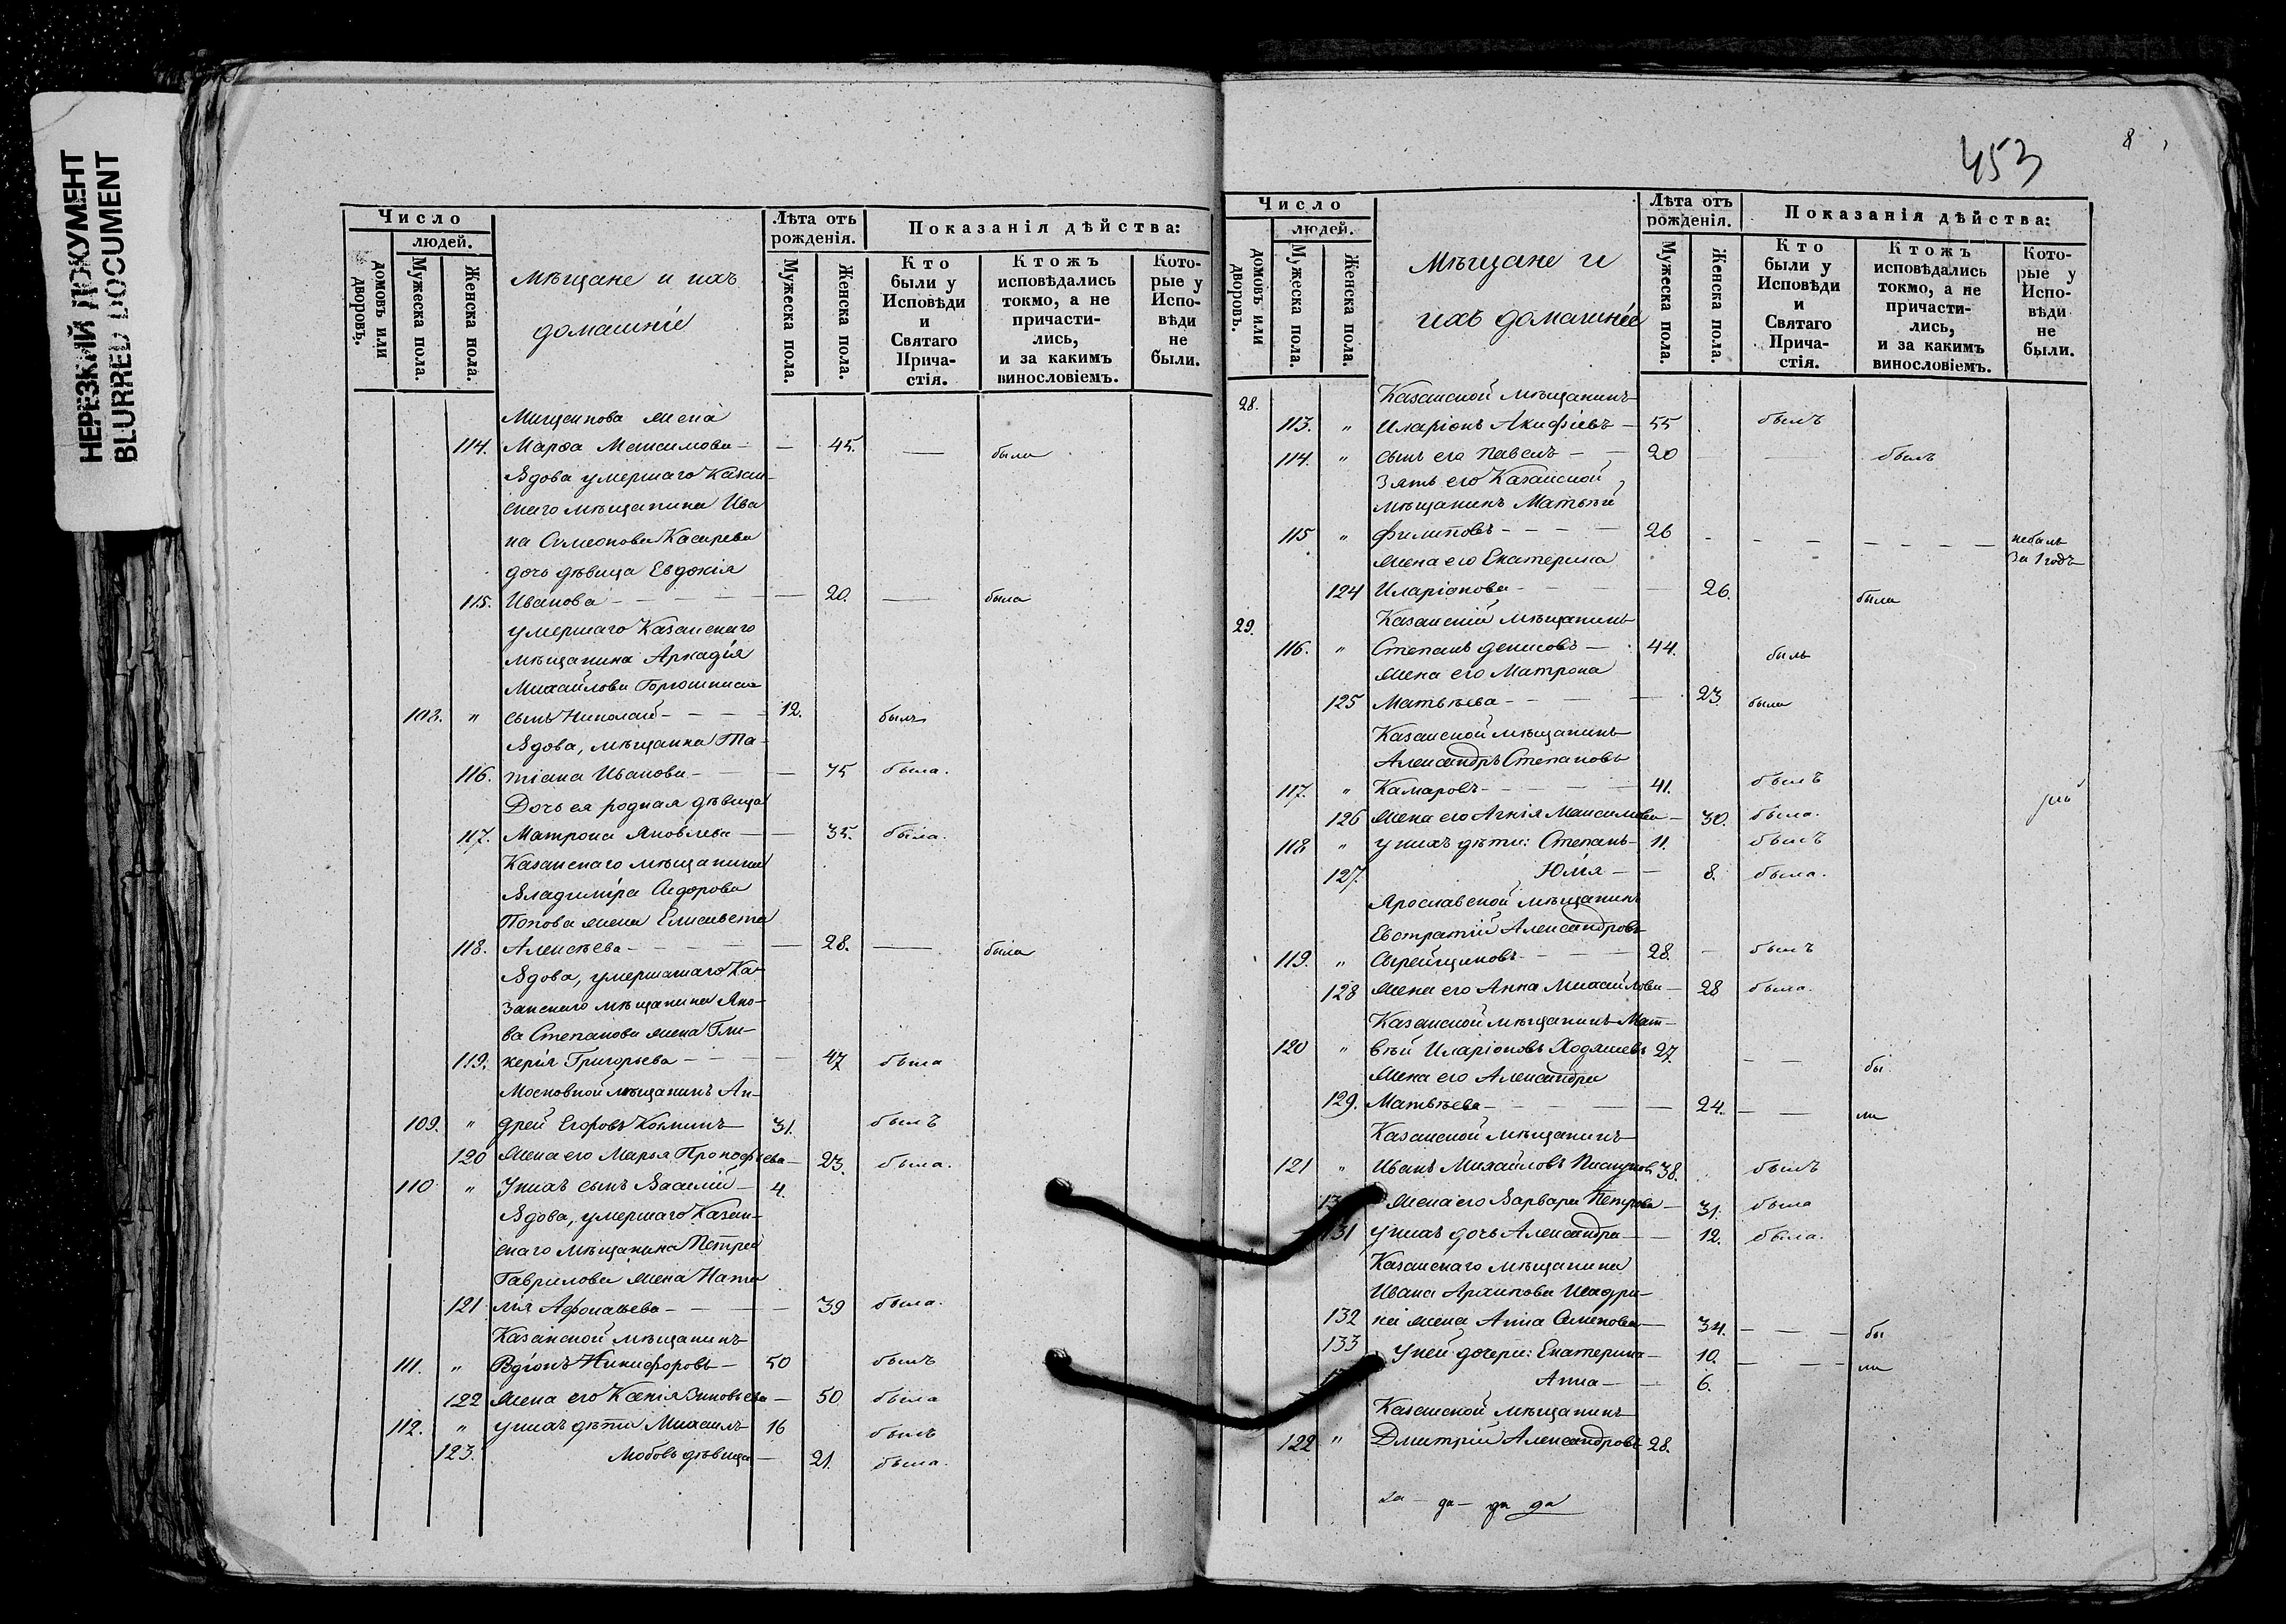 НЕРЕЗКИЙ ДОКУМЕНТ
BLURRED DOCUMENT
Число
людей.
домовъ или дворовъ.
Мужеска пола.
Женска пола.
Мѣщане и ихъ
домашніе
Лѣта отъ рожденія.
Мужеска пола.
Женска пола.
Показанія дѣйства:
Кто были у Исповѣди и Святаго Прича-стія.
Ктожъ исповѣдались токмо, а не причасти-лись, и за какимъ винословіемъ.
Кото-рые у Испо-вѣди не были.
жена
114. Марѳа Максимова — — 45. — была
Вдова умершаго Казан-
скаго мѣщанина Ива
на Симеонова
дочь дѣвица Евдокія
115. Иванова — — 20. — была
умершаго Казанскаго
мѣщанина Аркадія
Михайлова
108. " сынъ Николай — 12. былъ
Вдова, мѣщанка Та-
116. тіана Иванова — — 75 была.
Дочь ея родная дѣвица
117. Матрона Яковлева — — 35. была.
Казанскаго мѣщанина
Владиміра Сидорова
Попова жена Елисавета
118. Алексѣева — — 28. — была
Вдова, умершаго Ка-
занскаго мѣщанина Яко-
ва Степанова жена Гли-
119. керія Григорьева — — 47 была
Московской мѣщанинъ Ан-
109. " дрей Егоровъ 31. былъ
120 Жена его Марья Прокофьева — 23. была.
110 " У нихъ сынъ Василій — 4.
Вдова, умершаго Казан-
скаго мѣщанина Петра
Гаврилова жена Ната
121 лія Афонасьева — — 39 была.
Казанской мѣщанинъ
111. " Родіонъ Никифоровъ — 50 былъ
122 Жена его Ксенія Зиновьева — 50 была
112. " у нихъ дѣти Михаилъ 16 былъ
123. Любовь дѣвица — 21. была.
453
8
Число
людей.
домовъ или дворовъ.
Мужеска пола.
Женска пола.
Мѣщане и
ихъ домашніе
Лѣта отъ рожденія.
Мужеска пола.
Женска пола.
Показанія дѣйства:
Кто были у Исповѣди и Святаго Прича-стія.
Ктожъ исповѣдались токмо, а не причасти-лись, и за какимъ винословіемъ.
Кото-рые у Испо-вѣди не были.
28. Казанской мѣщанинъ
113. " Иларіонъ Акифіевъ — 55 былъ
114. " сынъ его Павелъ — 20 былъ
Зять его Казанской
мѣщанинъ Матвѣй
115 " Филиповъ — 26 небылъ
за 1 годъ
Жена его Екатерина
124 Иларіонова — — 26. была
29. Казанскій мѣщанинъ
116. " Степанъ Денисовъ — 44. былъ
Жена его Матрона
125 Матвѣева — — 23. была
Казанской мѣщанинъ
Александръ Степановъ
117. " Камаровъ — 41. былъ
126 Жена его Агнія Максимова — 30. была.
118 " у нихъ дѣти: Степанъ — 11. былъ
127. Юлія — — 8. была.
Ярославской мѣщанинъ
Евстратій Александровъ
119. " Сырейщиковъ — 28. былъ
128 Жена его Анна Михайлова — 28 была.
Казанской мѣщанинъ Мат-
120 " вѣй Иларіоновъ Ходяшевъ 27. — — бы
Жена его Александра
129. Матвѣева — — 24. — — ли
Казанской мѣщанинъ
121 " Иванъ Михайловъ 38. былъ
Жена его Варвара Петрова — 31. была
131 у нихъ дочь Александра — — 12. была.
Казанскаго мѣщанина
Ивана Архипова Шадри-
132 на жена Анна Семенова — 34. — — бы
133 У ней дочери: Екатерина — 10. — — ли
Анна — — 6.
Казанской мѣщанинъ
122 " Дмитрій Александровъ 28.